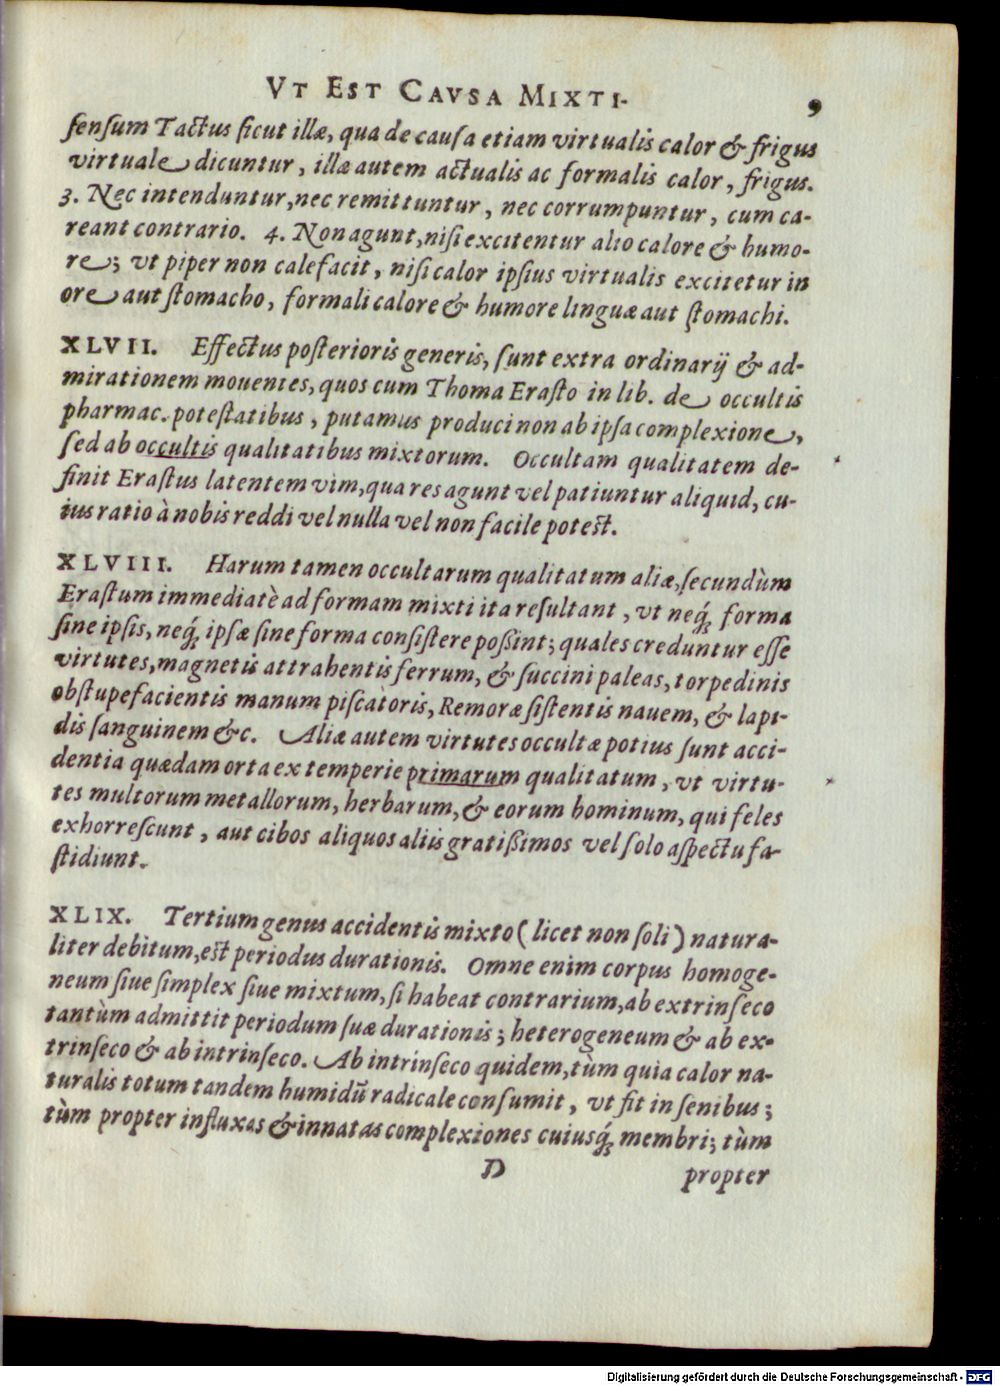 VT EST CAVSA MIXTI. 9
sensum Tactus sicut illæ, qua de causa etiam virtualis calor & frigus
virtuale dicuntur, illæ autem actualis ac formalis calor, frigus.
3. Nec intenduntur, nec remittuntur, nec corrumpuntur, cum ca-
reant contrario. 4. Non agunt, nisi excitentur alio calore & humo-
re; vt piper non calefacit, nisi calor ipsius virtualis excitetur in
ore aut stomacho, formali calore & humore linguæ aut stomachi.
XLVII. Effectus posterioris generis, sunt extra ordinarij & ad-
mirationem mouentes, quos cum Thoma Erasto in lib. de occultis
pharmac. potestatibus, putamus produci non ab ipsa complexione,
sed ab occultis qualitatibus mixtorum. Occultam qualitatem de-
finit Erastus latentem vim, qua res agunt vel patiuntur aliquid, cu-
ius ratio à nobis reddi vel nulla vel non facile potest.
XLVIII. Harum tamen occultarum qualitatum aliæ, secundùm
Erastum immediatè ad formam mixti ita resultant, vt neq́; forma
sine ipsis, neq́; ipsæ sine forma consistere poßint; quales creduntur esse
virtutes, magnetis attrahentis ferrum, & succini paleas, torpedinis
obstupefacientis manum piscatoris, Remoræ sistentis nauem, & lapi-
dis sanguinem &c. Aliæ autem virtutes occultæ potius sunt acci-
dentia quædam orta ex temperie primarum qualitatum, vt virtu-
tes multorum metallorum, herbarum, & eorum hominum, qui feles
exhorrescunt, aut cibos aliquos aliis gratißimos vel solo aspectu fa-
stidiunt.
XLIX. Tertium genus accidentis mixto (licet non soli) natura-
liter debitum, est periodus durationis. Omne enim corpus homoge-
neum siue simplex siue mixtum, si habeat contrarium, ab extrinseco
tantùm admittit periodum suæ durationis; heterogeneum & ab ex-
trinseco & ab intrinseco. Ab intrinseco quidem, tùm quia calor na-
turalis totum tandem humidũ radicale consumit, vt fit in senibus;
tùm propter influxas & innatas complexiones cuiusq́; membri; tùm
D propter
Digitalisierung gefördert durch die Deutsche Forschungsgemeinschaft - DFG